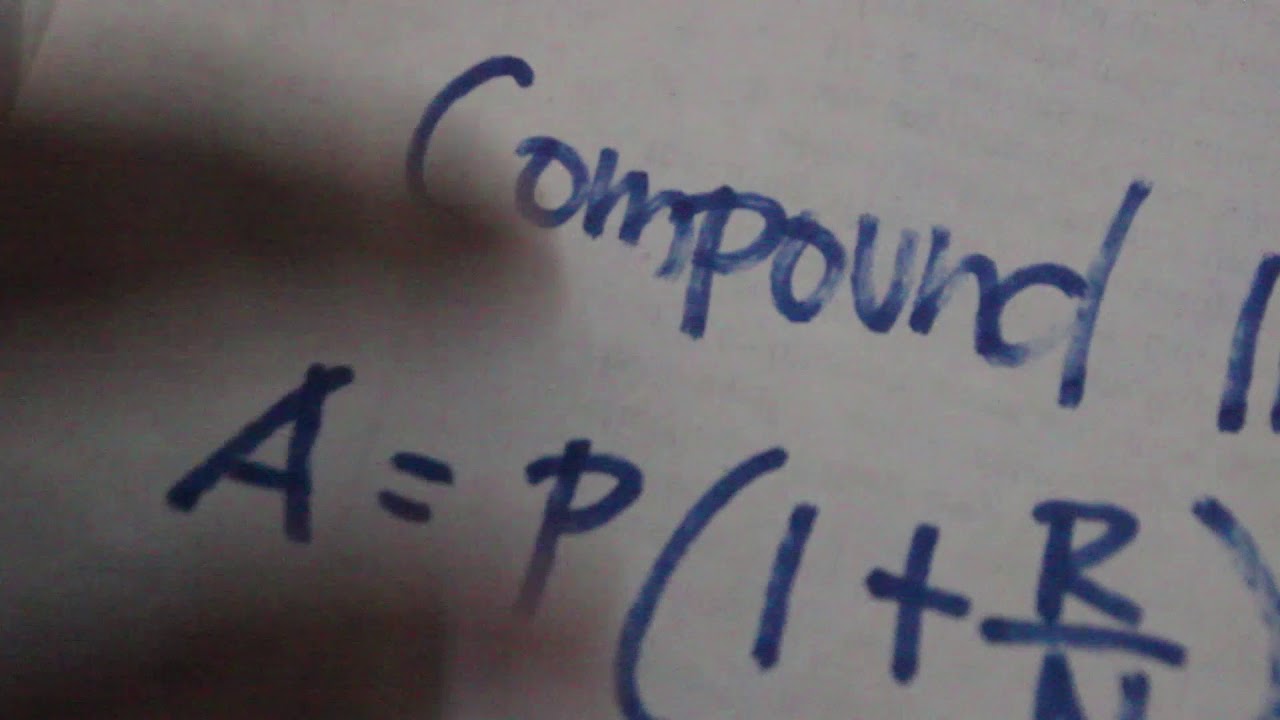 Compound
A = P(1 + R/N)